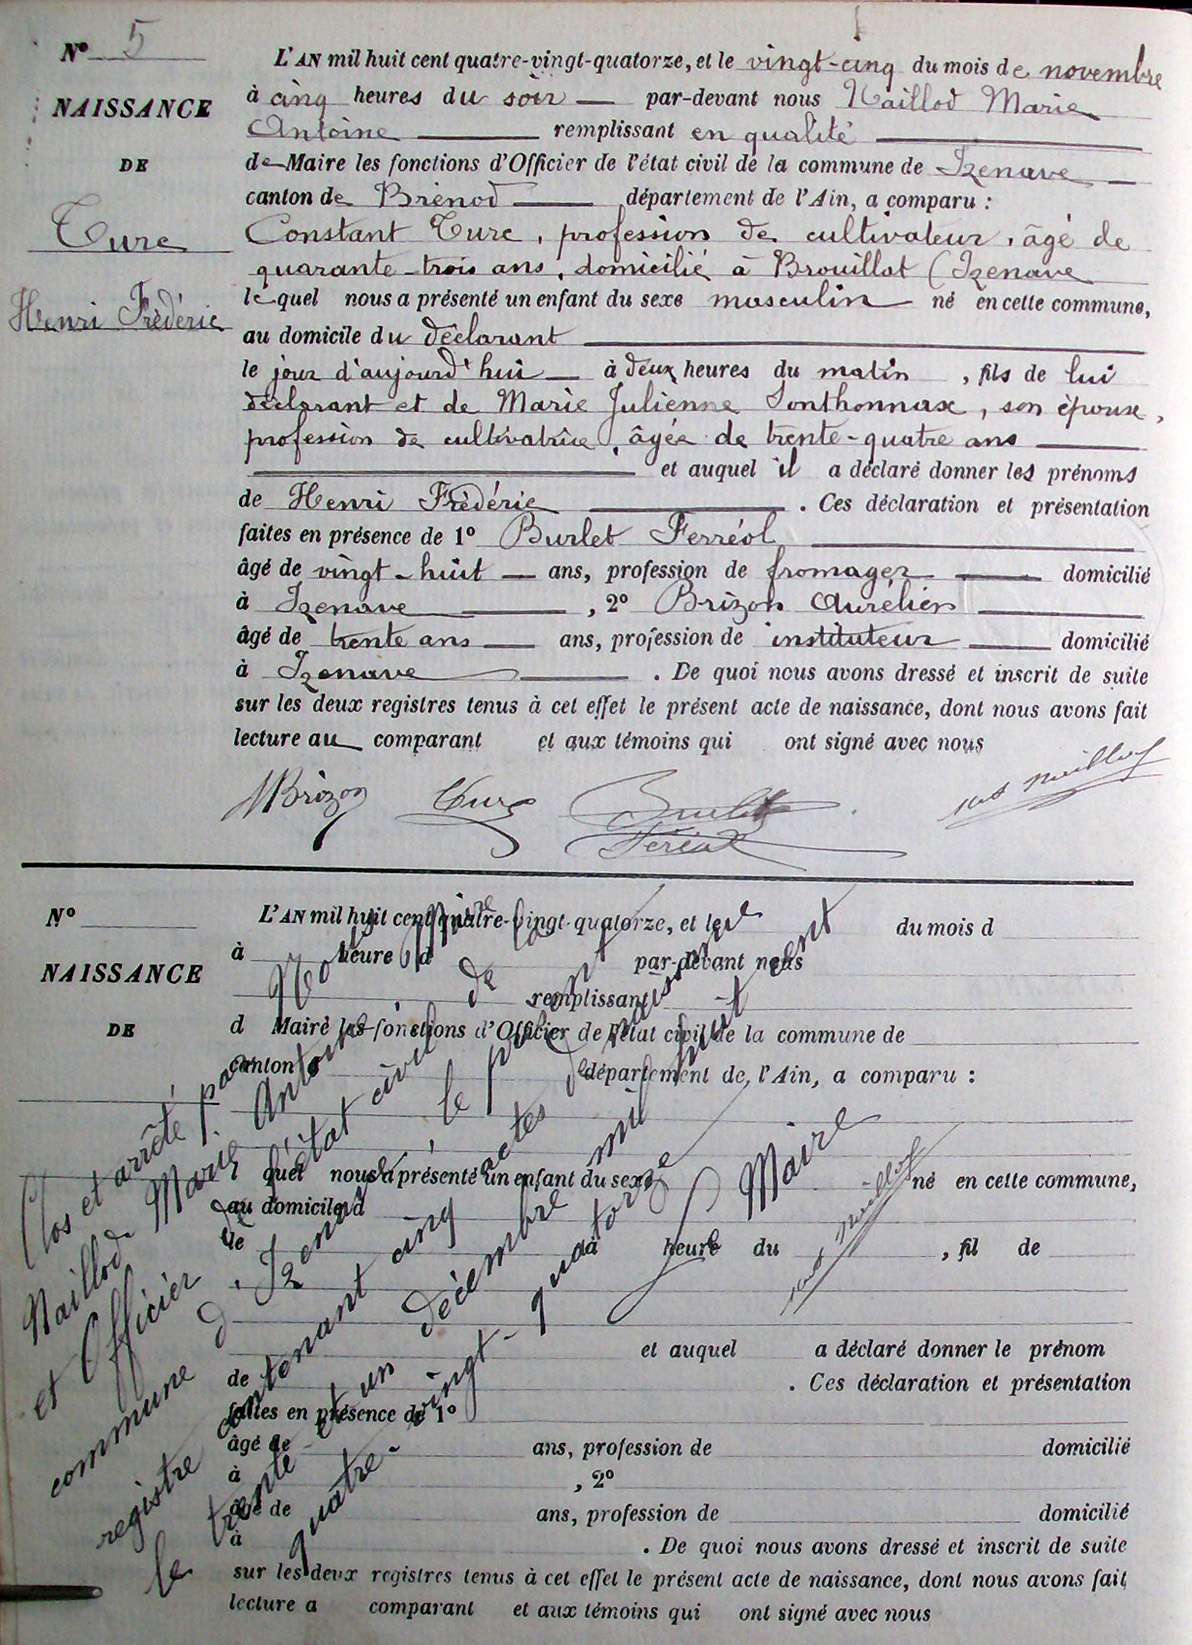 N° 5
NAISSANCE
DE
Turc
Henri Frédéric
L'AN mil huit cent quatre-vingt-quatorze, et le vingt-cinq du mois de novembre
à cinq heures du soir par-devant nous Naillod Marie
Antoine remplissant en qualité
de Maire les fonctions d'Officier de l'état civil de la commune de Izenave
canton de Brénod département de l'Ain, a comparu :
Constant Turc, profession de cultivateur, âgé de
quarante-trois ans, domicilié à Brouillat (Izenave
lequel nous a présenté un enfant du sexe masculin né en cette commune,
au domicile du déclarant
le jour d'aujourd'hui à deux heures du matin, fils de lui
déclarant et de Marie Julienne Sonthonnax, son épouse,
profession de cultivatrice, âgée de trente-quatre ans
et auquel il a déclaré donner les prénoms
de Henri Frédéric . Ces déclaration et présentation
faites en présence de 1° Burlet Ferréol
âgé de vingt-huit ans, profession de fromager domicilié
à Izenave , 2° Brizon Aurélien
âgé de trente ans ans, profession de instituteur domicilié
à Izenave . De quoi nous avons dressé et inscrit de suite
sur les deux registres tenus à cet effet le présent acte de naissance, dont nous avons fait
lecture au comparant et aux témoins qui ont signé avec nous
ABrizon Turc Burlet Naillod
Féréol
N°
NAISSANCE
DE
L'AN mil huit cent quatre-vingt-quatorze, et le du mois d
à heure d par-devant nous
remplissant
d Maire les fonctions d'Officier de l'état civil de la commune de
canton d département de l'Ain, a comparu :
quel nous a présenté un enfant du sexe né en cette commune,
au domicile d
le à heure du , fil de
et auquel a déclaré donner le prénom
de . Ces déclaration et présentation
faites en présence de 1°
âgé de ans, profession de domicilié
à , 2°
âgé de ans, profession de domicilié
à . De quoi nous avons dressé et inscrit de suite
sur les deux registres tenus à cet effet le présent acte de naissance, dont nous avons fait
lecture a comparant et aux témoins qui ont signé avec nous
Clos et arrêté par Nous Maire
Naillod Marie Antoine de la
et Officier de l'état civil
commune d'Izenave, le présent
registre contenant cinq actes de naissance
le trente et un décembre mil huit cent
quatre-vingt-quatorze
Maire
Naillod